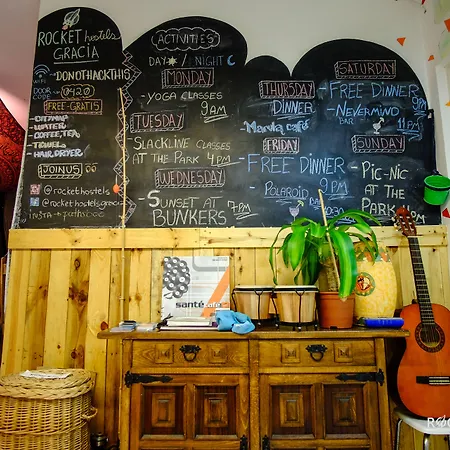 ROCKET hostels
GRACIA
WIFI
DONOTHACKTHIS
DOOR
CODE
0420
FREE-GRATIS
CITYMAP
WATER
COFFEE, TEA
TOWEL
HAIR DRYER
JOIN US
rocket.hostels
@rocket.hostels.gracia
ACTIVITIES
DAY NIGHT
MONDAY
YOGA CLASSES
9AM
TUESDAY
SLACKLINE CLASSES
AT THE PARK 4PM
WEDNESDAY
SUNSET AT
BUNKERS 7PM
THURSDAY
DINNER
FRIDAY
FREE DINNER
9PM
POLAROID
BAR
SATURDAY
FREE DINNER
NEVERMIND
BAR
11PM
SUNDAY
PIC-NIC
AT THE
PARK
santé